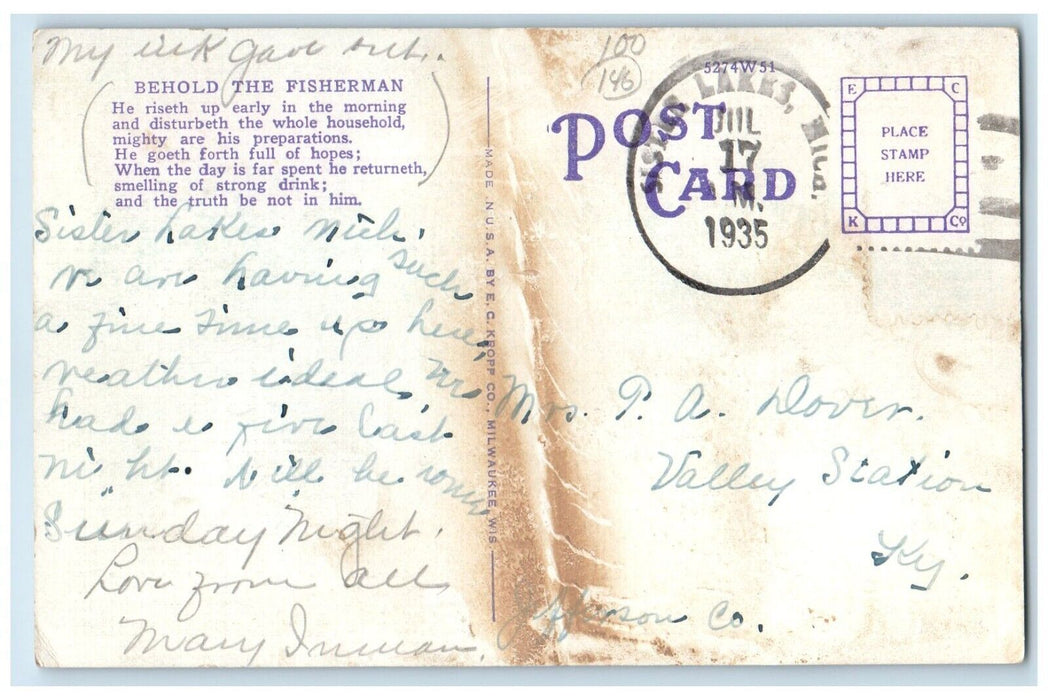 My ink gave out.
BEHOLD THE FISHERMAN
He riseth up early in the morning
and disturbeth the whole household,
mighty are his preparations.
He goeth forth full of hopes;
When the day is far spent he returneth,
smelling of strong drink;
and the truth be not in him.
Sister Lakes Mich.
We are having such
a fine time up here,
weather ideal We
had a fire last
night. Will be home
Sunday Night.
Love from all
Mary Inman.
MADE N U.S.A. BY E. C. KROPP CO., MILWAUKEE, WIS.
100
146
5274W51
POST CARD
LAKES,
JUL
17
M.
1935
E C
PLACE
STAMP
HERE
K Co
Mrs. P. A. Dover.
Valley Station
Ky.
Jefferson Co.